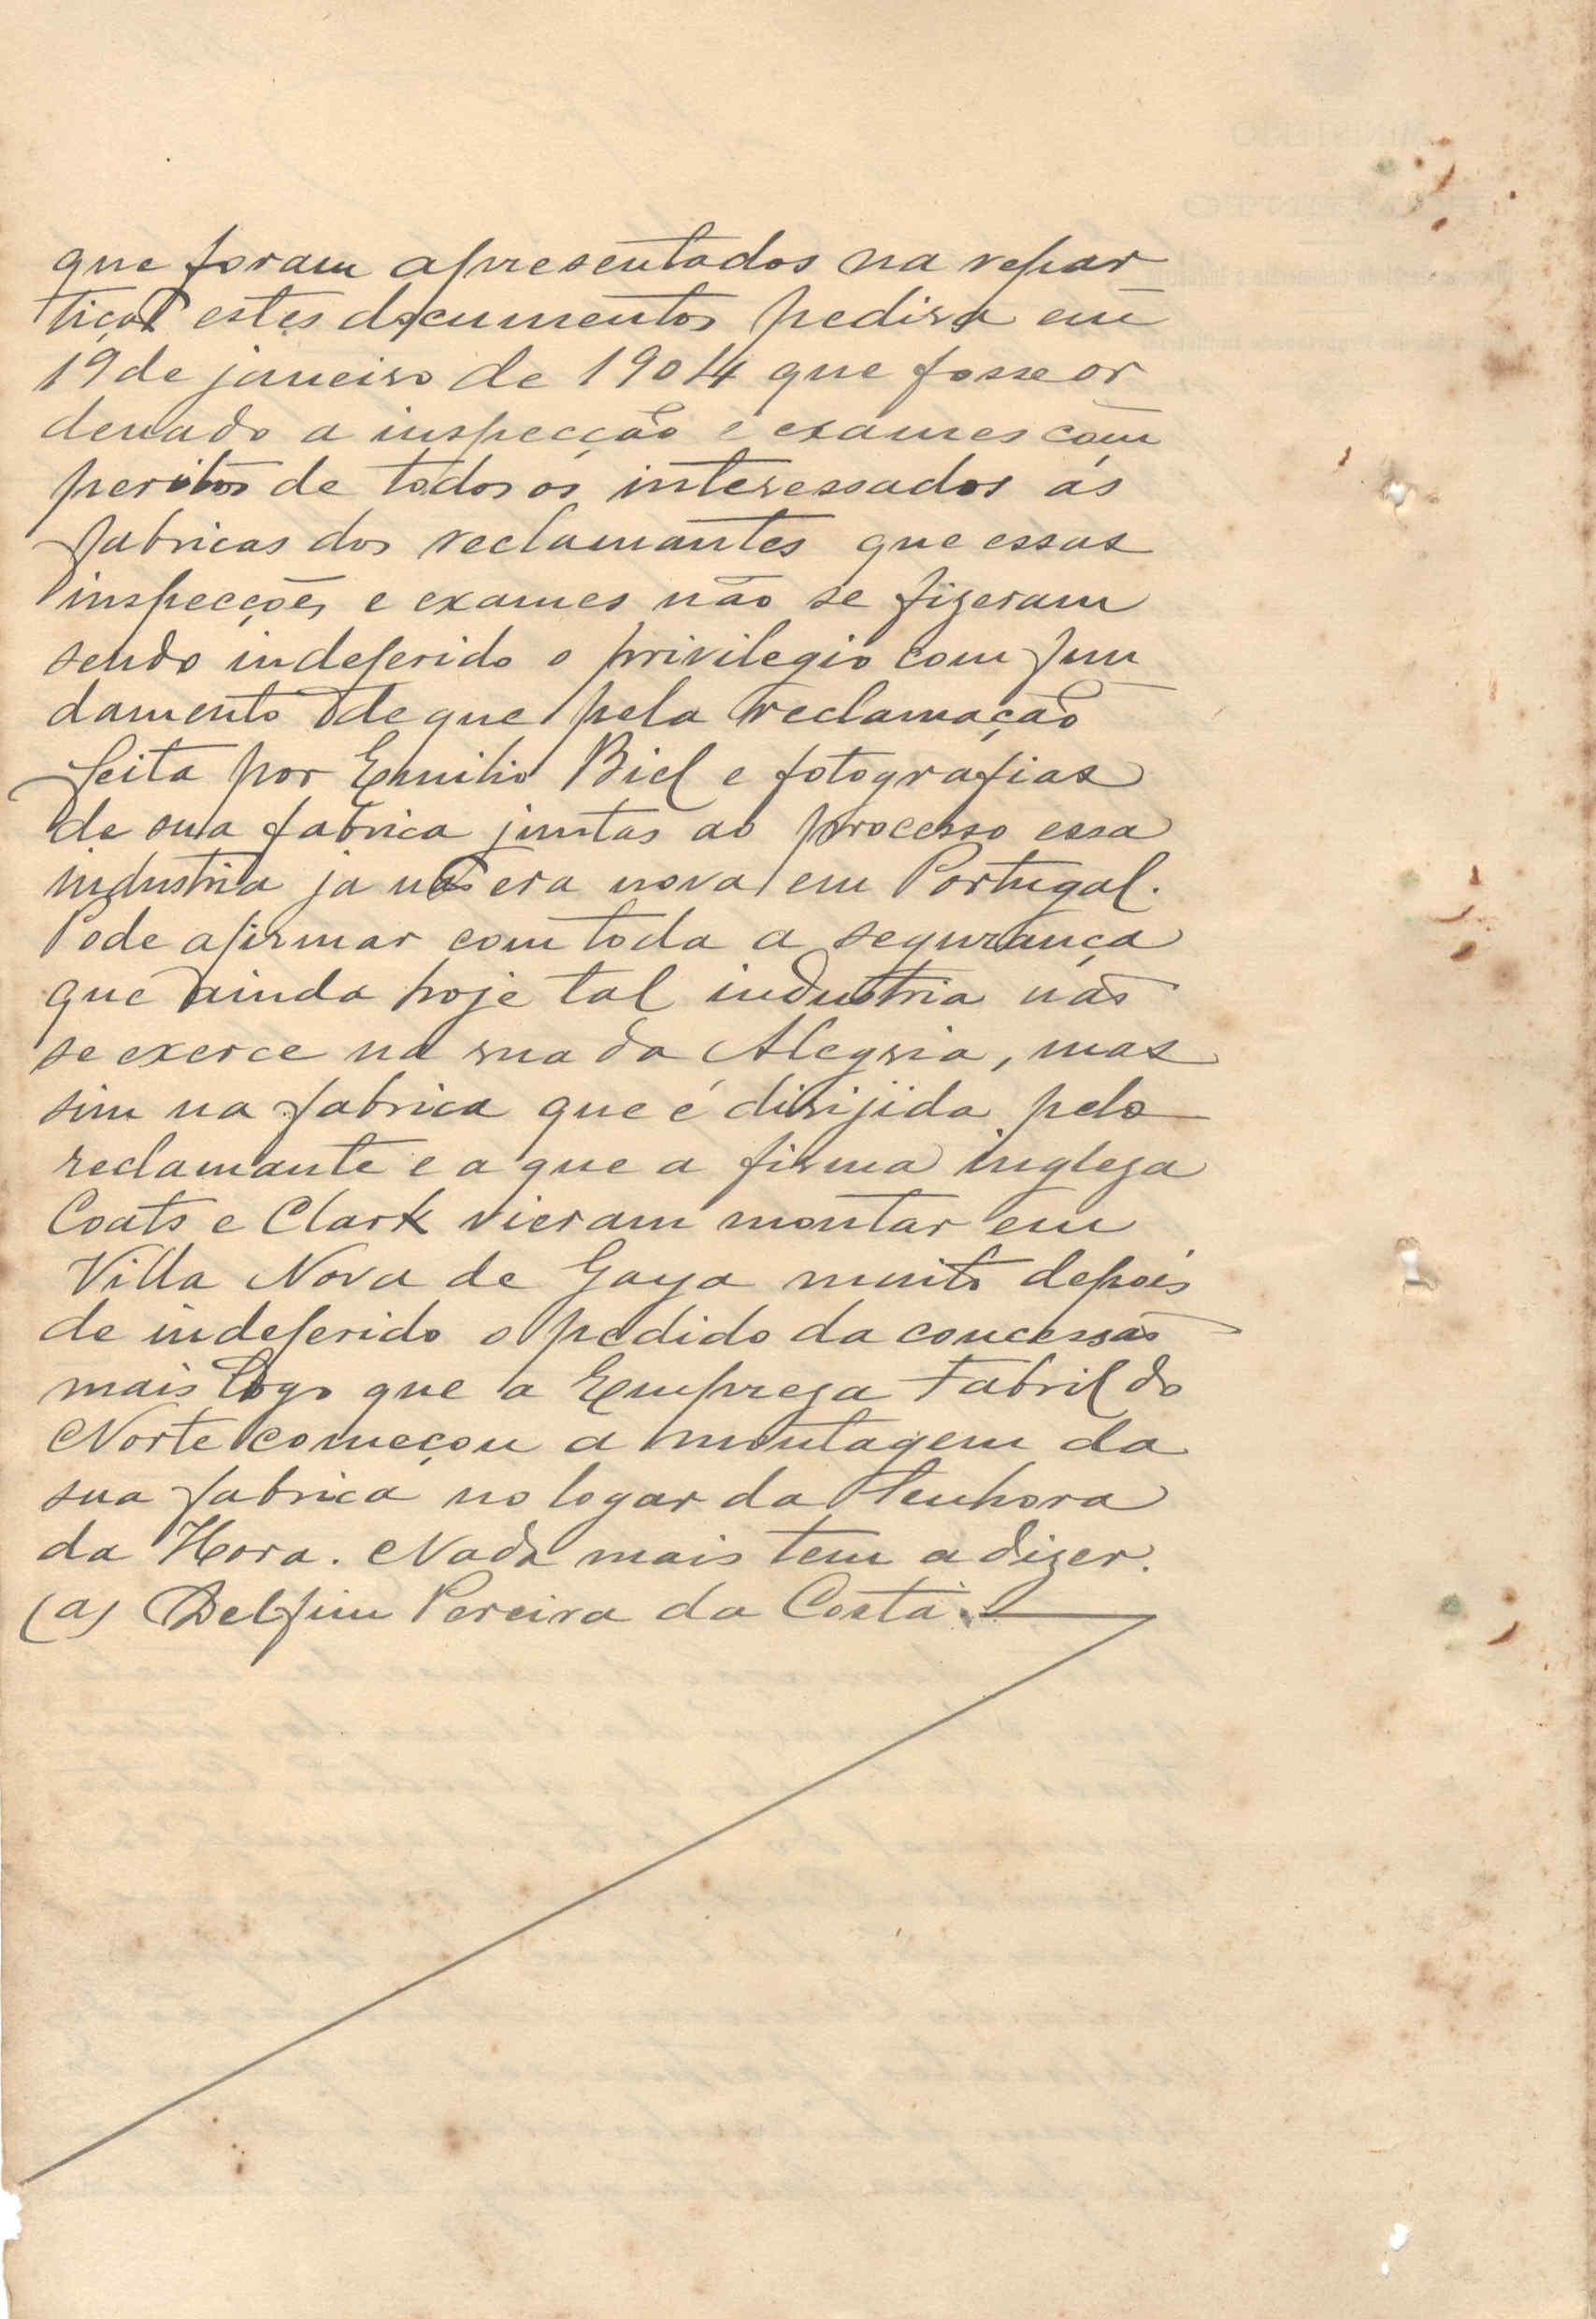 que foram apresentados na repar
tição estes documentos pedira em
19 de janeiro de 1904 que fosse or
denado a inspecção e exames com
peritos de todos os interessados ás
fabricas dos reclamantes que essas
inspecções e exames não se fizeram
sendo indeferido o privilegio com fun
damento de que pela reclamação
feita por Emilio Biel e fotografias
de sua fabrica juntas ao processo essa
industria ja não era nova em Portugal.
Pode afirmar com toda a segurança
que ainda hoje tal industria não
se exerce na rua da Alegria, mas
sim na fabrica que é dirijida pelo
reclamante e a que a firma ingleza
Coats e Clark vieram montar em
Villa Nova de Gaya muito depois
de indeferido o pedido da concessão
mais logo que a Empreza Fabril do
Norte começou a montagem da
sua fabrica no logar da Senhora
da Hora. Nada mais tem a dizer.
(a) Delfim Pereira da Costa.